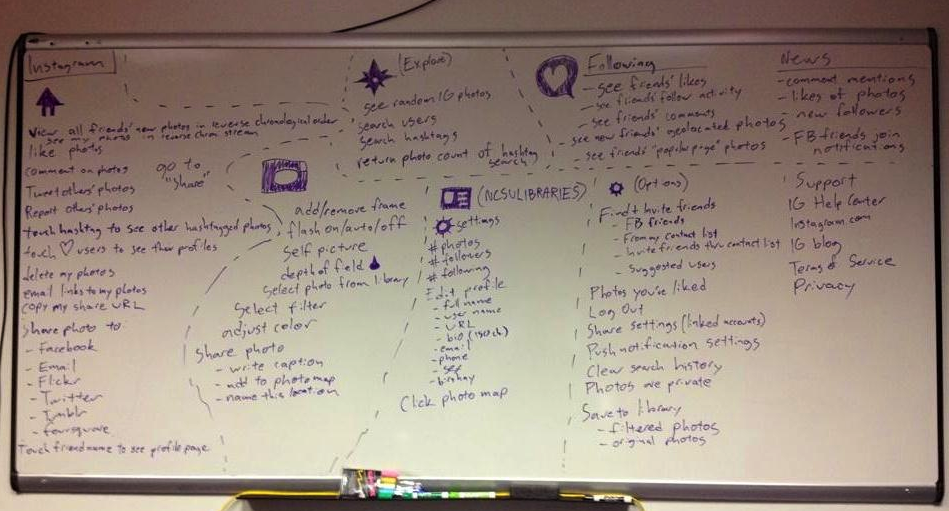 Instagram
View all friends' new photos in reverse chronological order
see my photos in reverse chron. stream
like photos
comment on photos
Tweet others' photos
Report others' photos
touch hashtag to see other hashtagged photos
touch ♡ users to see their profiles
delete my photos
email links to my photos
copy my share URL
Share photo to:
- Facebook
- Email
- Flickr
- Twitter
- Tumblr
- foursquare
Touch friend name to see profile page
go to
"share"
add/remove frame
flash on/auto/off
self picture
depth of field
select photo from library
Select filter
adjust color
Share photo
- write caption
- add to photo map
- name this location
(Explore)
see random IG photos
search users
search hashtags
return photo count of hashtag
search
(NCSULIBRARIES)
settings
# photos
# followers
# following
Edit profile
- full name
- user name
- URL
- bio (150 ch)
- email
- phone
- sex
- birthday
Click photo map
Following
- see friends' likes
- see friends' follow activity
- see friends' comments
- see new friends' geolocated photos
- see friends' "popular page" photos
(Options)
Find + Invite friends
- FB friends
- From my contact list
- Invite friends thru contact list
- Suggested users
Photos you've liked
Log Out
Share settings (linked accounts)
Push notification settings
Clear search history
Photos are private
Save to library
- filtered photos
- original photos
News
- comment mentions
- likes of photos
- new followers
- FB friends join
notifications
Support
IG Help Center
Instagram.com
IG blog
Terms of Service
Privacy